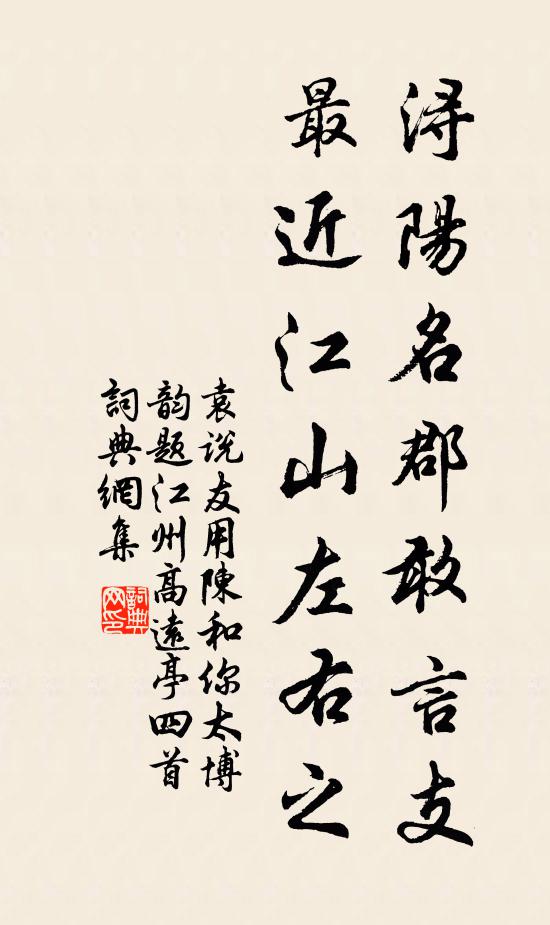 浔陽名郡敢言支
最近江山左右之
袁说友用陳和你太博
韵题江州高遠亭四首
詞典網集
詞典网印